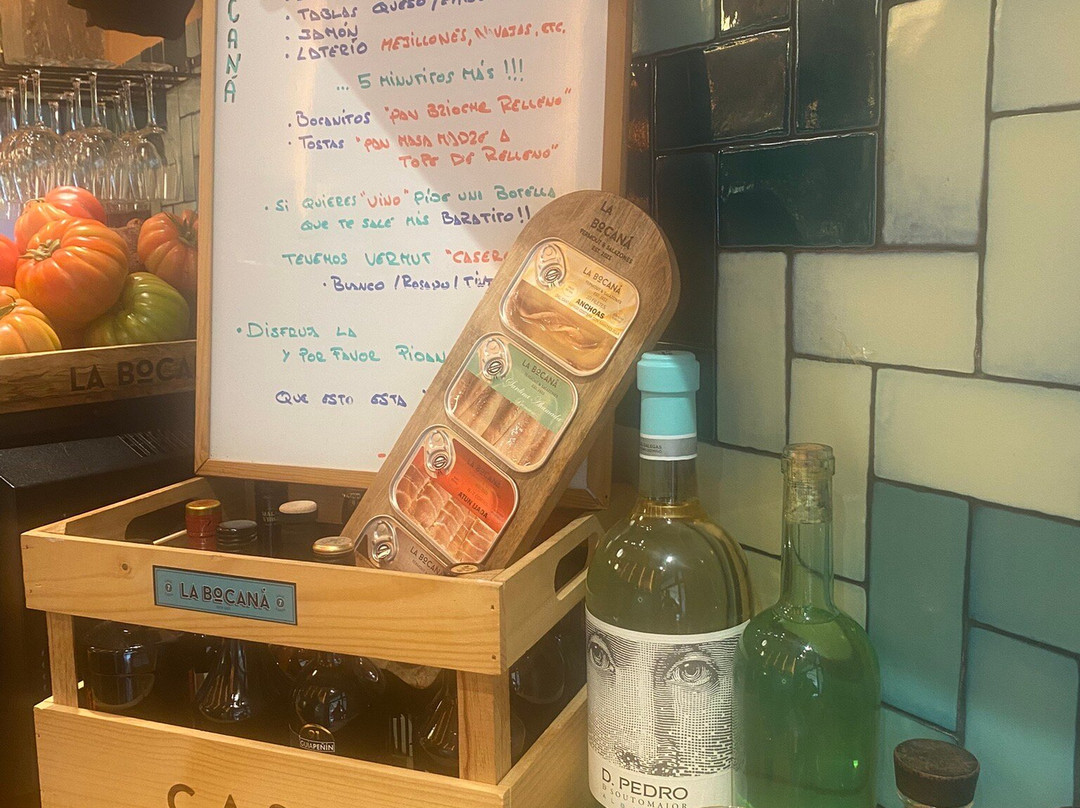 CANÁ
• TABLAS QUESO /
• JAMÓN
• LATERÍO MEJILLONES, NAVAJAS, ETC.
... 5 MINUTITOS MÁS !!!
• BOCANITOS "PAN BRIOCHE RELLENO"
• TOSTAS "PAN MASA MADRE A
TOPE DE RELLENO"
• SI QUIERES "VINO" PIDE UNA BOTELLA
QUE TE SALE MÁS BARATITO !!
TENEMOS VERMUT "CASER
• BLANCO / ROSADO / TINT
• DISFRUTA LA
Y POR FAVOR PIDAN
QUE ESTO ESTA
LA BOCANÁ
VERMOUT & SALAZONES
LA BOCANÁ
ANCHOAS
LA BOCANÁ
LA BOCANÁ
ATUN IJADA
LA BOCANÁ
LA BOCA
LA BOCANÁ
GUIAPEÑIN
CAS
D. PEDRO
DE SOUTOMAIOR